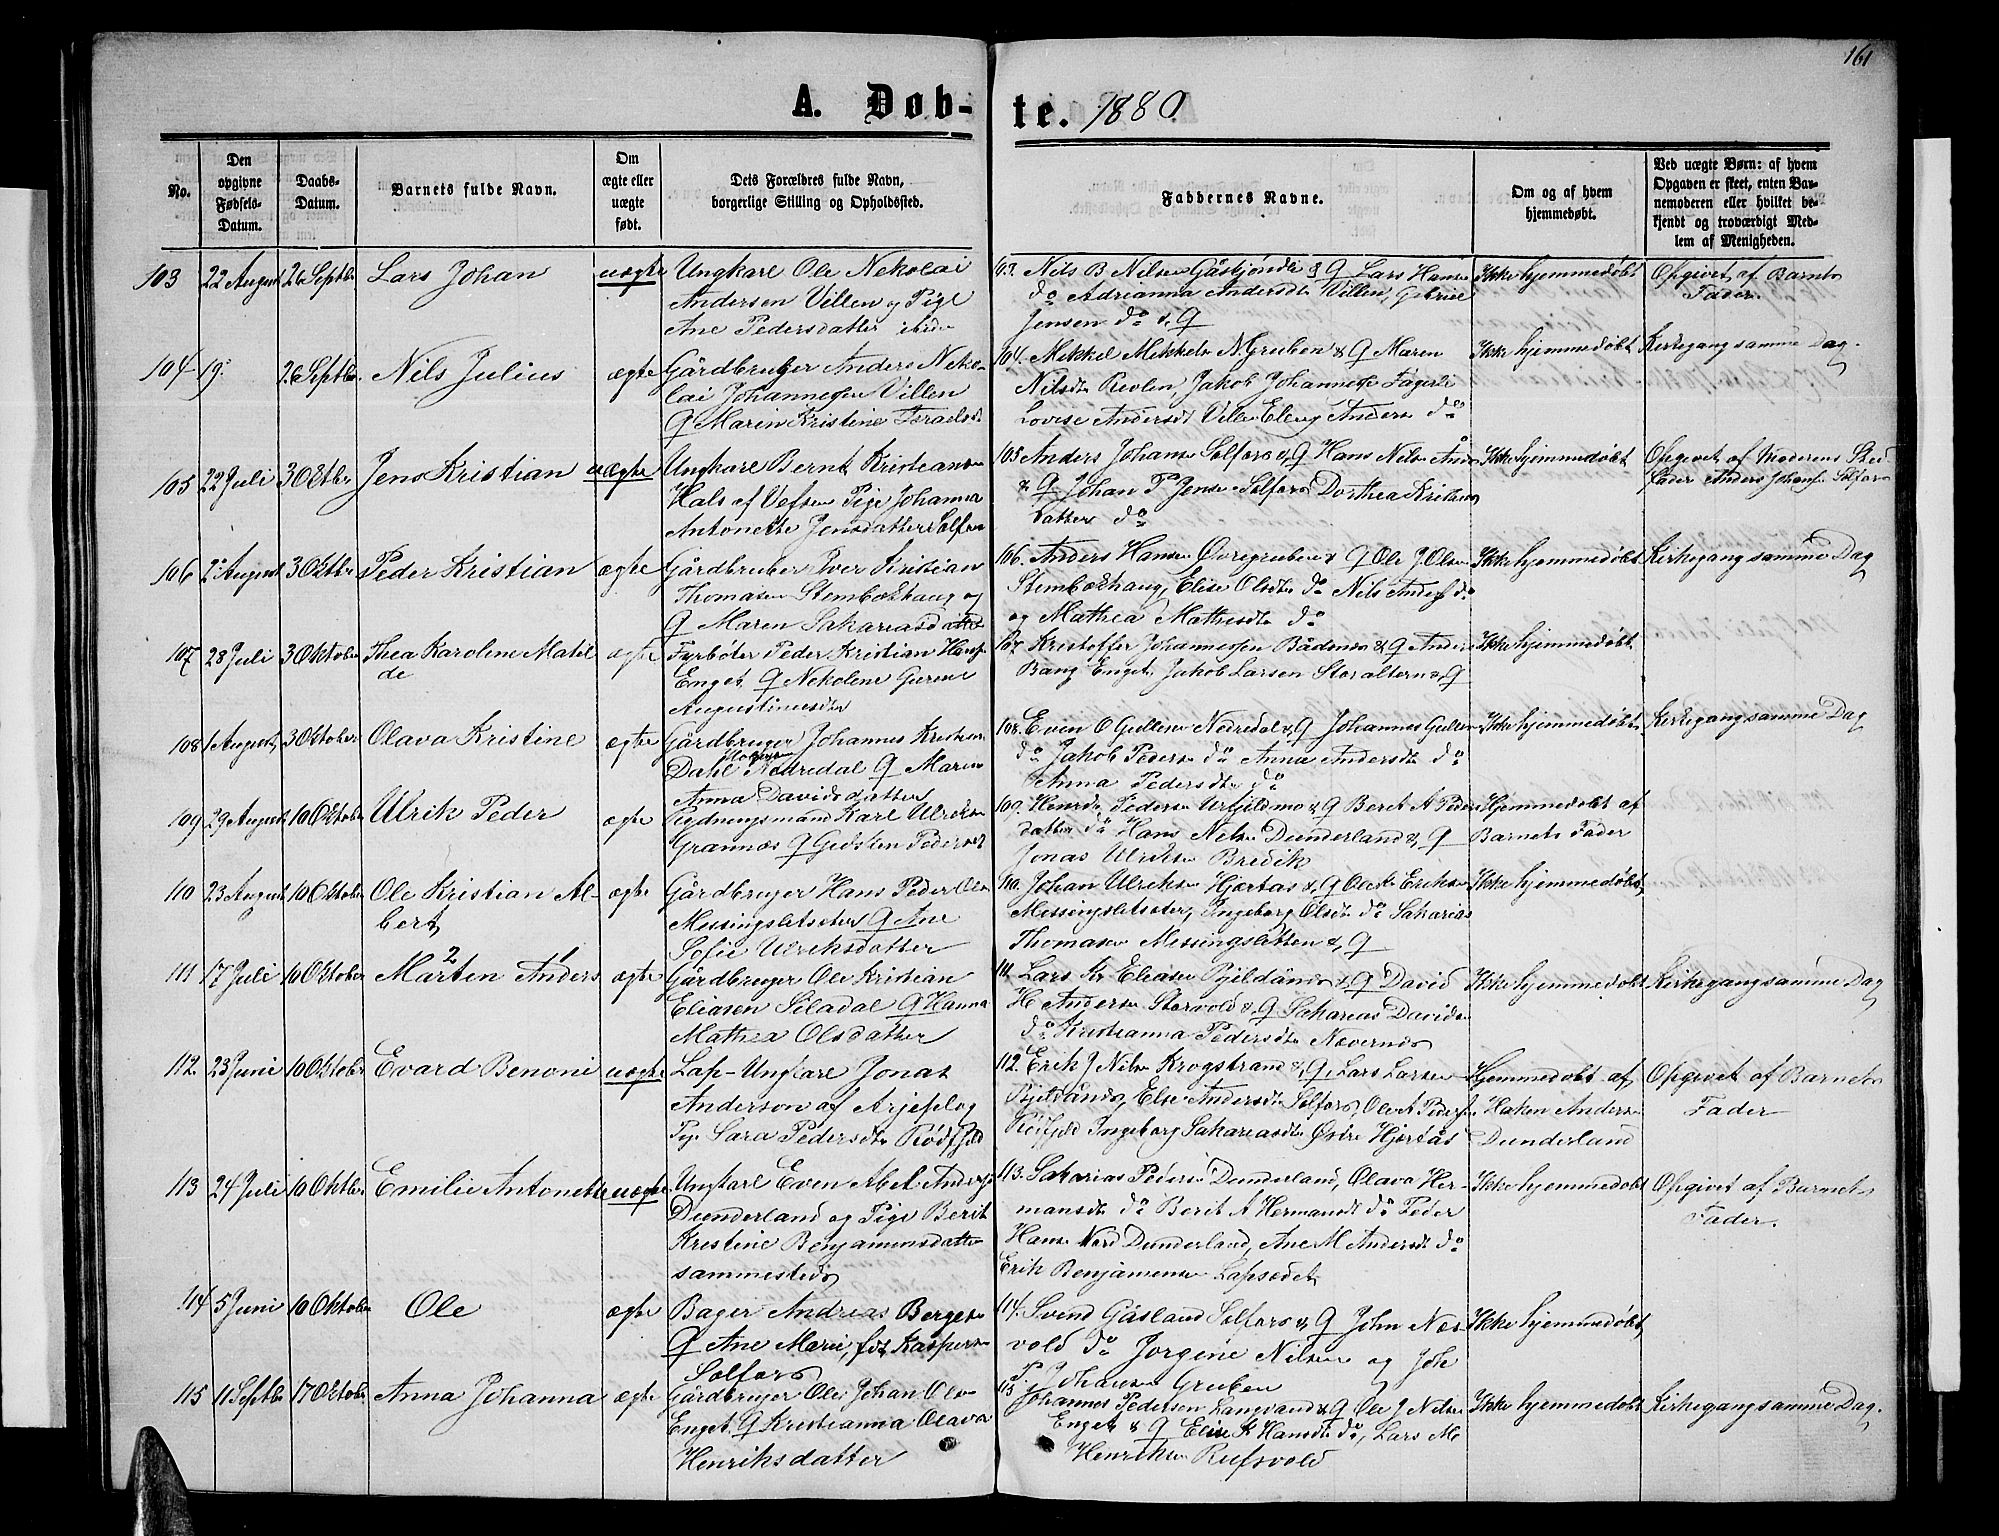 161
A. Døb-
te. 1880
No.
Den
opgivne
Fødsels-
Datum.
Daabs-
Datum.
Barnets fulde Navn.
Om
ægte eller
uægte
født.
Dets Forældres fulde Navn,
borgerlige Stilling og Opholdssted.
Faddernes Navne.
Om og af hvem
hjemmedøbt.
Ved uægte Børn: af hvem
Opgaven er skeet, enten Bar-
nemoderen eller hvilket be-
kjendt og troværdigt Med-
lem af Menigheden.
103 22 August 26 Septbr Lars Johan uægte
Ungkarl Ole Nekolai
Andersen Villen og Pige
Ane Pedersdatter ibid
103. Nils B Nilsen & Q Lars Hans
do Adrianna Andersdt Villen, Gabriel
Jensen do & Q
Ikke hjemmedøbt
Opgivet af Barnets
Fader.
104 19. 26 Septbr. Nils Julius ægte
Gårdbruger Anders Neko-
lai Johannesen Villen
Q Marin Kristine Israelsdt
104. Mikkel Mikkels N. Gruben & Q Maren
Nilsdt Revlen, Jakob Johannes Fagerli
Lovise Andersdt Villen Andersn do
Ikke hjemmedøbt
Kirkegang samme Dag.
105 22 Juli 3 Oktbr Jens Kristian uægte
Ungkarl Bernt Kristians
Hals af Vefsn Pige Johanna
Antonette Jensdatter Selfors
105 Anders Johans Selfors & Q Hans Nils
& Q Johan P Jens Selfors Dorthea Kristens
datter do
Ikke hjemmedøbt
Opgivet af Moderens Sted
fader Anders Johans Selfors
106 2 August 3 Oktbr Peder Kristian ægte
Gårdbruger Iver Kristian
Thomasen Stenbækhaug og
Q Maren Sakariasdatter
106. Anders Hansn Øvregruben & Q Ole J Olsn
Stenbækhaug, Elise Olsdt do Nils Anders do
og Mathea Mathisdt do
Ikke hjemmedøbt
Kirkegang samme Dag
107 28 Juli 3 Oktober Thea Karoline Matil
de
ægte
Fyrbøter Peder Kristian Hans
Enget Q Nekoline
Augustinusdtr
107. Kristoffer Johannessen Båsmo & Q Anders
Bang Enget Jakob Larsen Storaltern & Q
Ikke hjemmedøbt
108 1 August 3 Oktober Olava Kristine ægte
Gårdbruger Johannes Kristians
Dahl Nedredal Q Maren
Anna Davidsdatter
108. Even O Gullesn Nedredal & Q Johannes Gullesn
do Jakob Pedersn do Anna Andersdt do
Anna Pedersdt do
Ikke hjemmedøbt
Kirkegang samme Dag
109 29 August 10 Oktober Ulrik Peder ægte
Rydningsmand Karl Ulriks
Grannæs Q Gidsken Pedersdt
109. Pedersn Urfjeldmo & Q Beret A Peders
datter do Hans Nilsn Dunderland & Q
Jonas Ulriksn Bredik
Hjemmedøbt af
Barnets Fader
110 23 August 10 Oktober Ole Kristian Al-
bert
ægte
Gårdbruger Hans Peder Olsn
Messingsletseter Q Ane
Sofie Ulriksdatter
110. Johan Ulriksn Hjertås & Q Ole Eriksn
Messingsletseter, Ingeborg Olsdt do Sakarias
Thomasn Messingsletten & Q
Ikke hjemmedøbt
111 17 Juli 10 Oktober Mårten Anders ægte
Gårdbruger Ole Kristian
Eliasen Siladal Q Hanna
Mathea Olsdatter
111. Lars Kr Eliasen Bjeldånes & Q David
H Andersn Storvold & Q Sakarias Davids
do Kristianna Pedersdt Nævernes
Ikke hjemmedøbt
Kirkegang samme Dag
112 23 Juni 10 Oktober Evard Benoni uægte
Lap-Ungkarl Jonas
Anderson af Arjeplog
Pige Sara Pedersdt Rødfjeld
112. Erik J Nilsn Krogstrand & Q, Lars Larsn
Bjeldånes, Else Andersdt Selfors, Ole A Peders
Rødfjeld Ingeborg Sakariasdt Østre Hjertås
Hjemmedøbt af
Haken Andersn
Dunderland
Opgivet af Barnets
Fader
113 24 Juli 10 Oktbr Emilie Antonette uægte
Ungkarl Even Abel Anders
Dunderland og Pige Berit
Kristine Benjaminsdatter
sammesteds
113. Sakarias Pedersn Dunderland, Olava Her-
mansdt do Berit A Hermansdt do Peder
Hansn Nord Dunderland, Ane M Andersdt do
Erik Benjaminsn Lapsædet
Ikke hjemmedøbt
Opgivet af Barnets
Fader.
114 5 Juni 10 Oktober Ole ægte
Bager Andreas Bergesn
Q Ane Marie, fdt Kaspersn
Selfors
114. Svend Gåsland Selfors & Q John Næs-
vold do Jørgine Nilsn og Joh
P. Johansn Gruben
Ikke hjemmedøbt
115 11 Septbr 17 Oktober Anna Johanna ægte
Gårdbruger Ole Johan Olsn
Enget Q Kristianna Olava
Henriksdatter
115 Johannes Pedersen Langvand & Q Ole J Nilsn
Enget & Q Elise K Hansdt do, Lars M
Henriksn Rufsvold
Ikke hjemmedøbt
Kirkegang samme Dag.